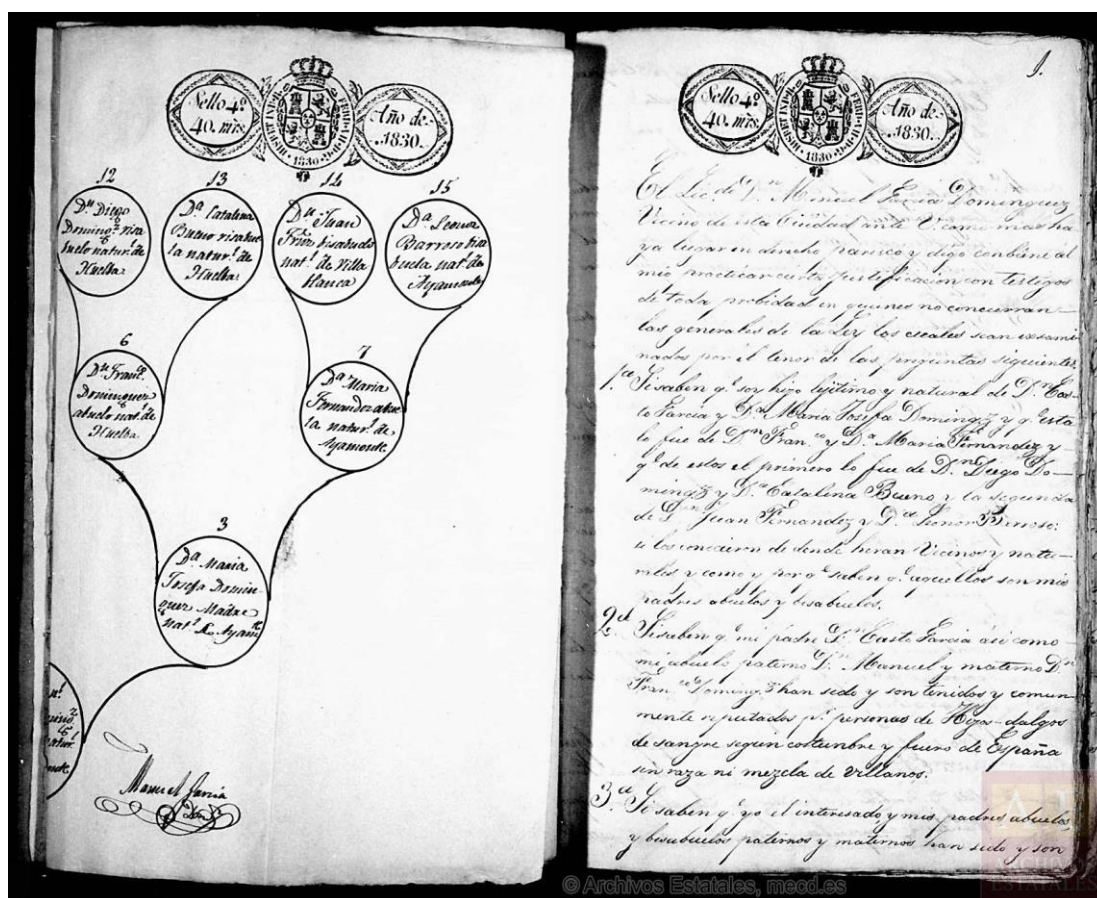 Sello 4º
40. mrs.
HISP. ET IND. R. FERD. VII D. G. 1830
Año de
1830.
12
Dn. Diego
Doming.z visa
buelo natur.l de
Huelba
13
Da. Catalina
Bueno visabue
la natur.l de
Huelba
14
Dn. Juan
Frnz bisabuelo
nat.l de Villa
blanca
15
Da. Leonor
Barroso bisa
buela nat.l de
Ayamonte
6
Dn. Fran.co
Dominguez
abuelo nat.l de
Huelba
7
Da. Maria
Fernandez abue
la natur.l de
Ayamonte
3
Da. Maria
Josefa Domin
guez Madre
nat.l de Ayam.te
Manuel Garcia
1.
Sello 4º
40. mrs.
HISP. ET IND. R. FERD. VII D. G. 1830
Año de
1830.
El Lic.do Dn. Manuel Garcia Dominguez
Vecino de esta Ciudad ante V. como mas ha
ya lugar en derecho paresco y digo conbiene al
mio practicar cierta justificacion con testigos
de toda probidad en quienes no concurran
las generales de la Ley los cuales sean exsami
nados por el tenor de las preguntas siguientes
1.a Si saben q.e soy hijo lejitimo y natural de Dn. Cas-
to Garcia y Da. Maria Josefa Doming.z y q.e esta
lo fue de Dn. Fran.co y Da. Maria Fernandez y
q.e de estos el primero lo fue de Dn. Diego Do-
ming.z y Da. Catalina Bueno y la segunda
de Dn. Juan Fernandez y Da. Leonor Barroso:
si los conocieron de donde heran Vecinos y natu-
rales y como y por q.e saben q.e aquellos son mis
padres abuelos y bisabuelos.
2.a Si saben q.e mi padre Dn. Casto Garcia asi como
mi abuelo paterno Dn. Manuel y materno Dn.
Fran.co Doming.z han sido y son tenidos y comun-
mente reputados p.r personas de Hijos-dalgos
de sangre segun costunbre y fuero de España
sin raza ni mezcla de villanos.
3.a Si saben q.e yo el interesado, y mis padres abuelos,
y bisabuelos paternos y maternos han sido y son
© Archivos Estatales, mecd.es
ARCHIVOS
ESTATALES